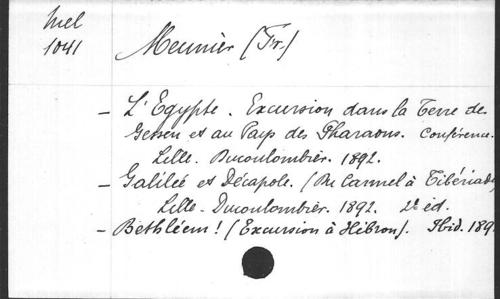 Mel
1041
Meunier (Fr.)
- L'Egypte. Excursion dans la Terre de
Gessen et au Pays des Pharaons. Conférence.
Lille. Ducoulombier. 1892.
- Galilée et Décapole. (Du Carmel à Tibériade
Lille - Ducoulombier. 1892. 2e éd.
- Bethléem! (Excursion à Hébron). Ibid. 189